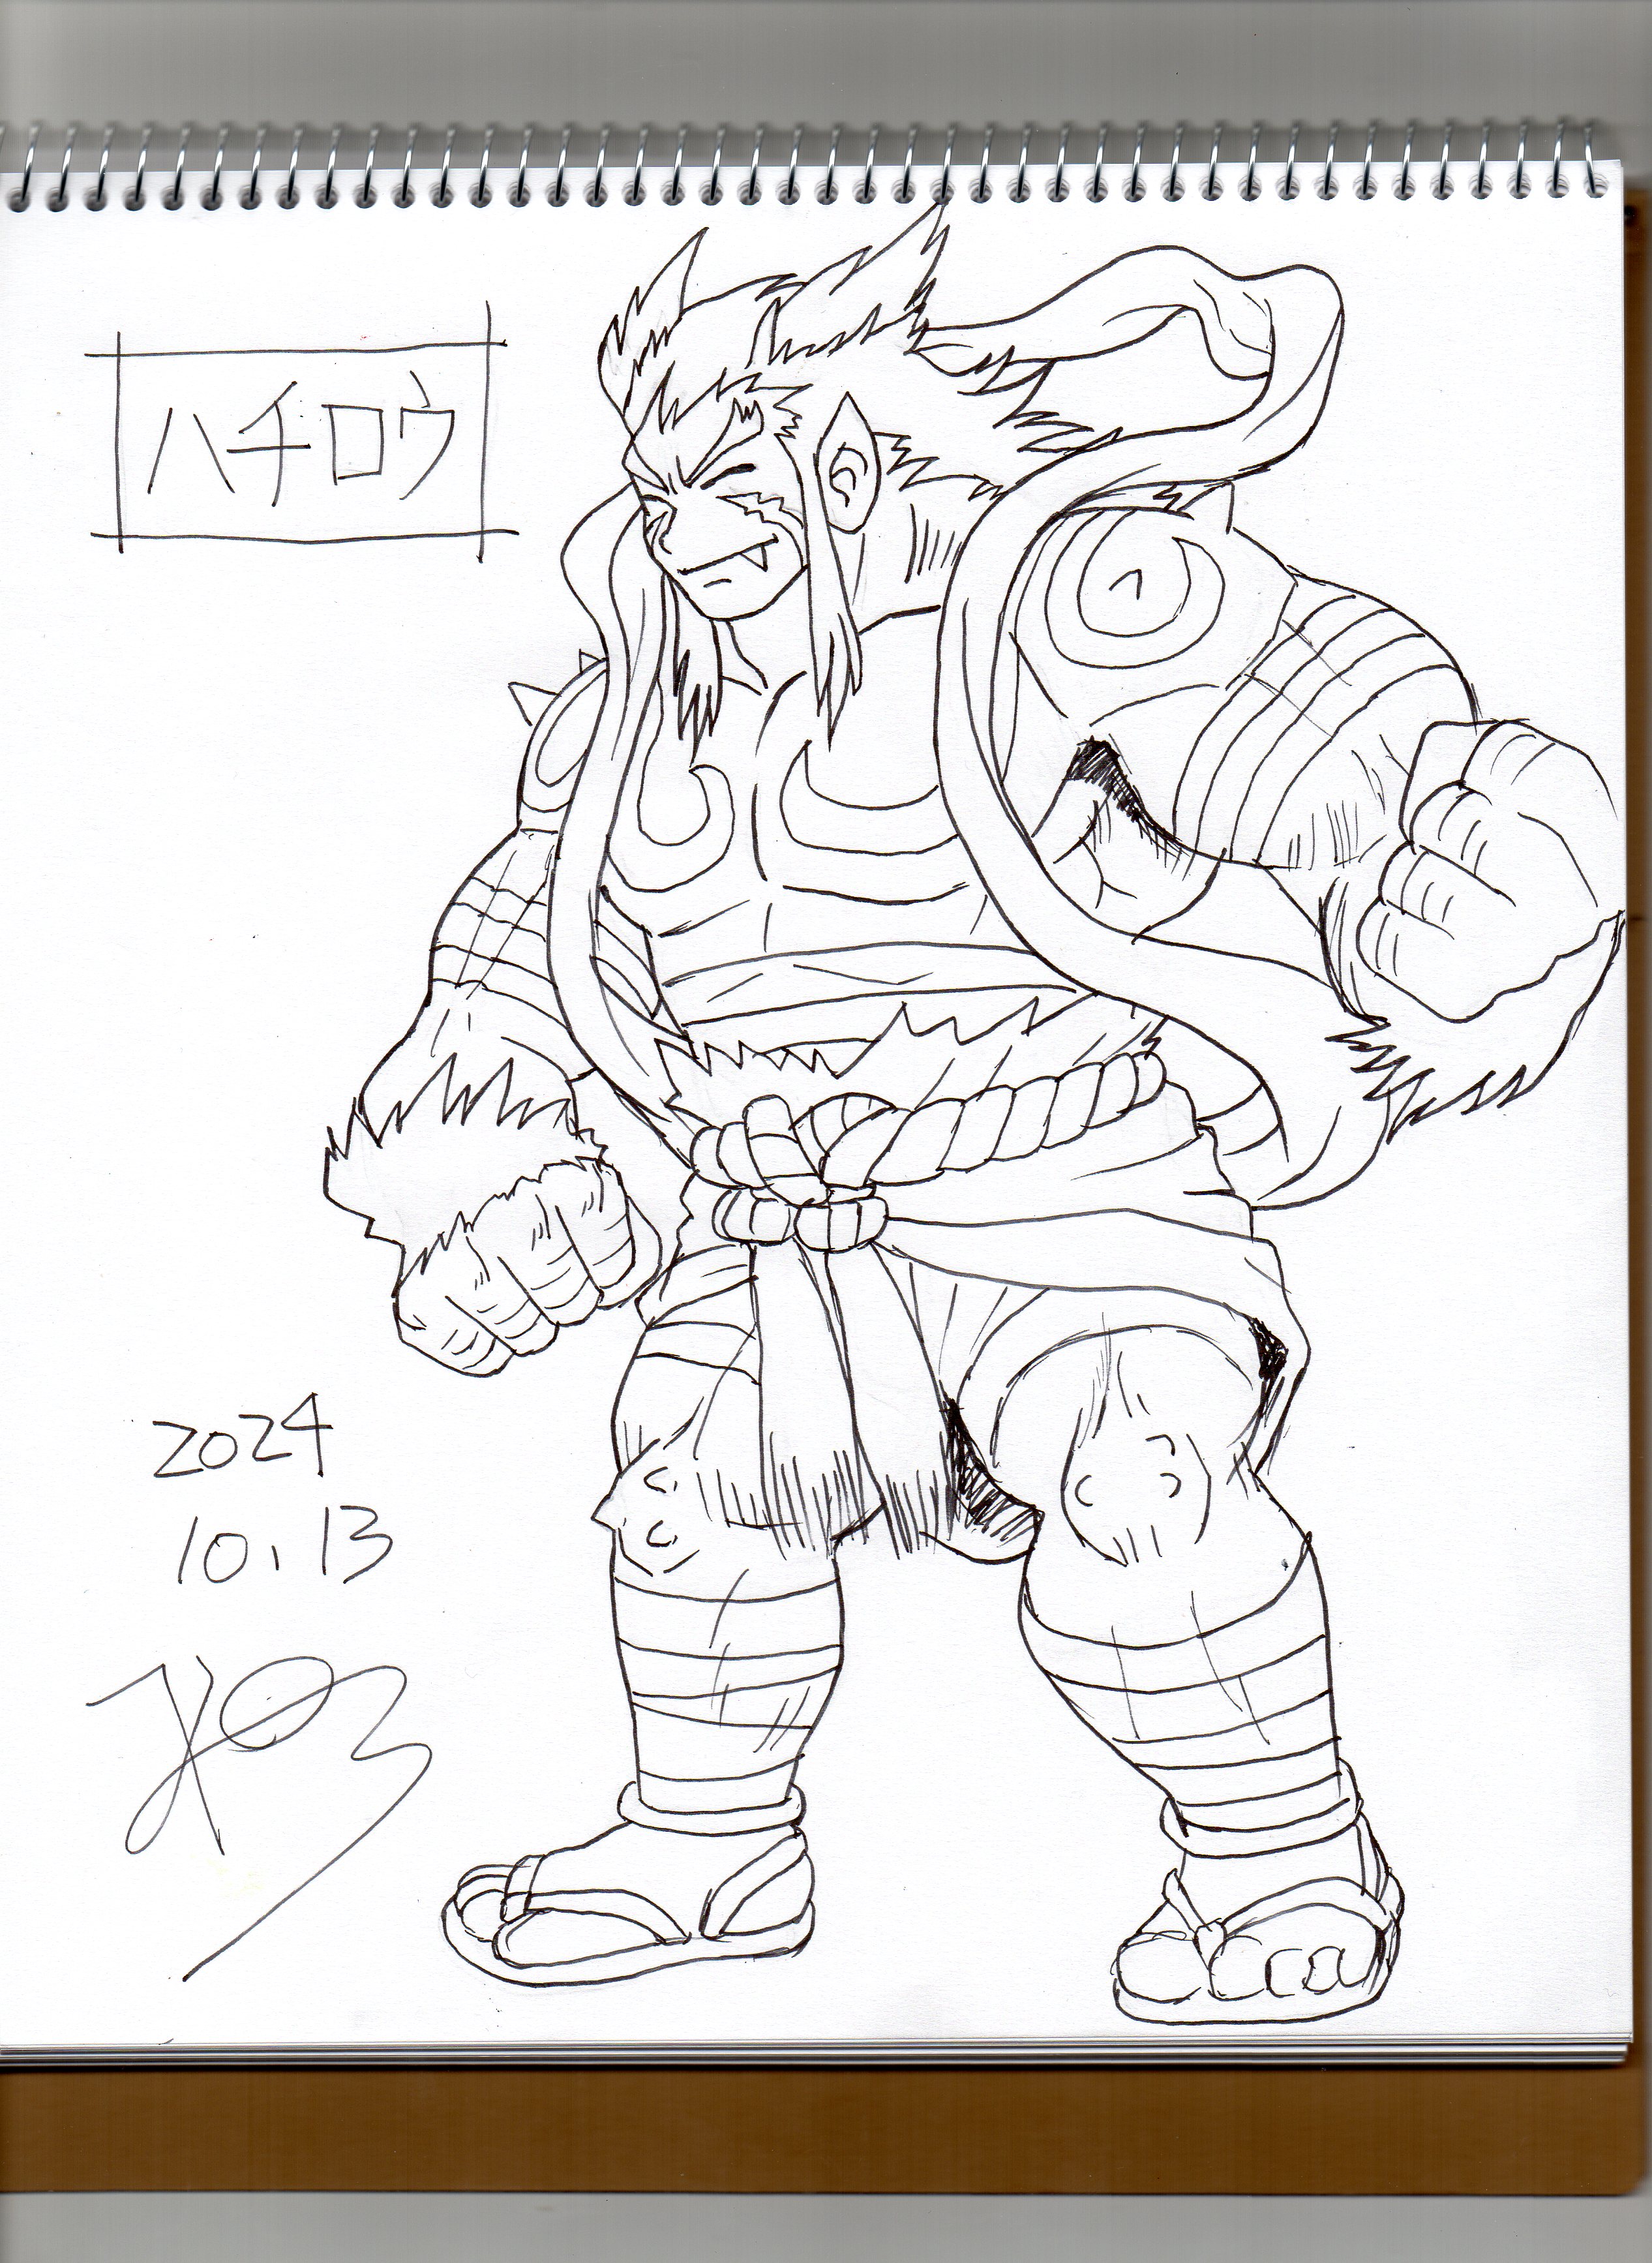 ハチロウ
2024
10.13